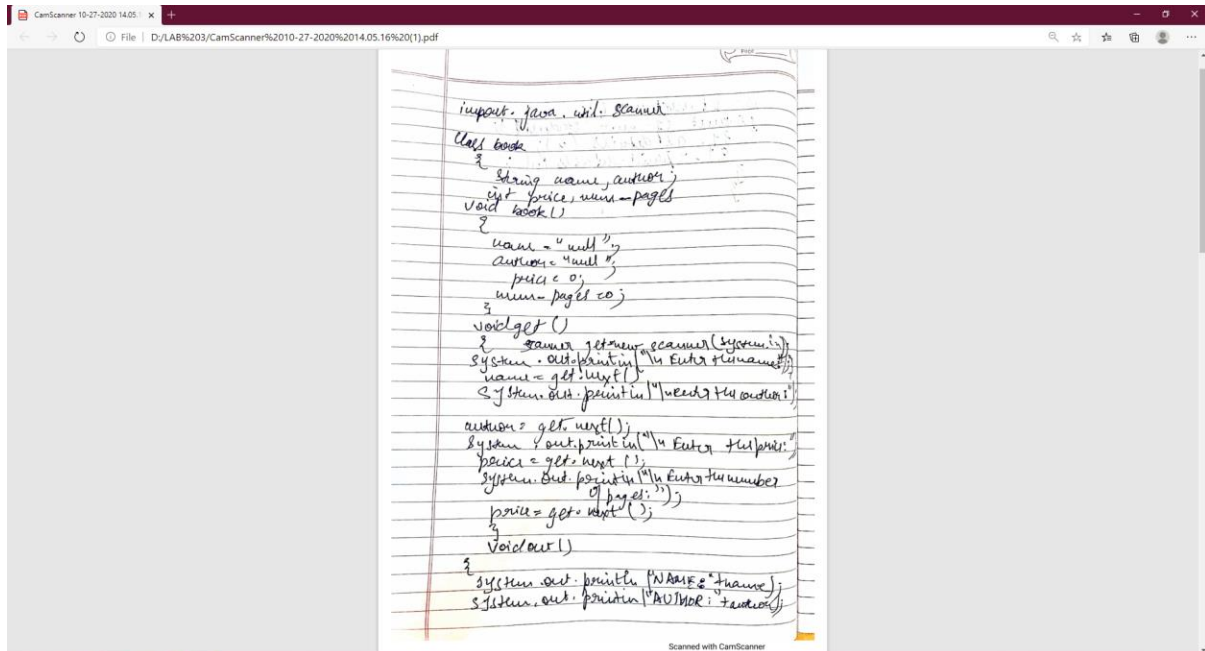 CamScanner 10-27-2020 14.05.1
File | D:/LAB%203/CamScanner%2010-27-2020%2014.05.16%20(1).pdf
import. java. util. Scanner
Class book
{
String name, author;
int price, num-pages
void book()
{
name = "null";
author = "null";
price = 0;
num-pages = 0;
}
void get ()
{ scanner get=new scanner(system.in);
system.out.println("\n Enter the name:");
name = get.next()
System.out.println("\n enter the author:")
author = get.next();
System.out.println("\n Enter the price:"
price = get.next ();
System.out.println("\n Enter the number
of pages:");
price = get.next ();
}
Void out()
{
System.out.println ("NAME:"+name);
System.out.println("AUTHOR:"+author);
Scanned with CamScanner